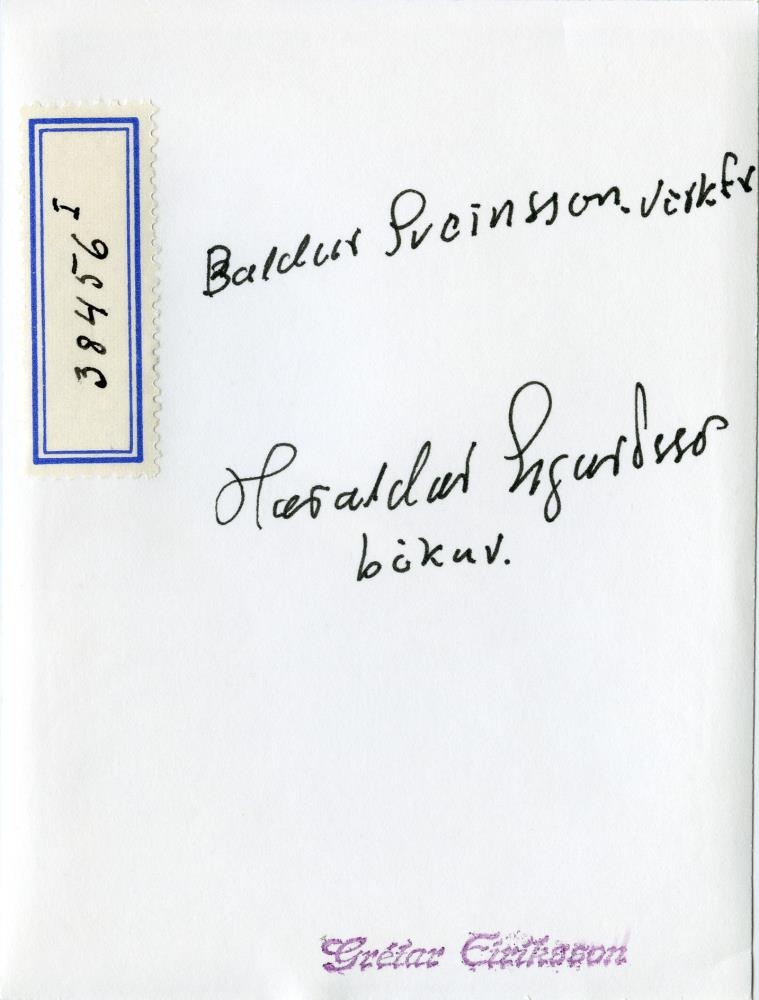 38456 I
Baldur Sveinsson. verkfr
Haraldur Sigurðsso
bókav.
Grétar Eiríksson